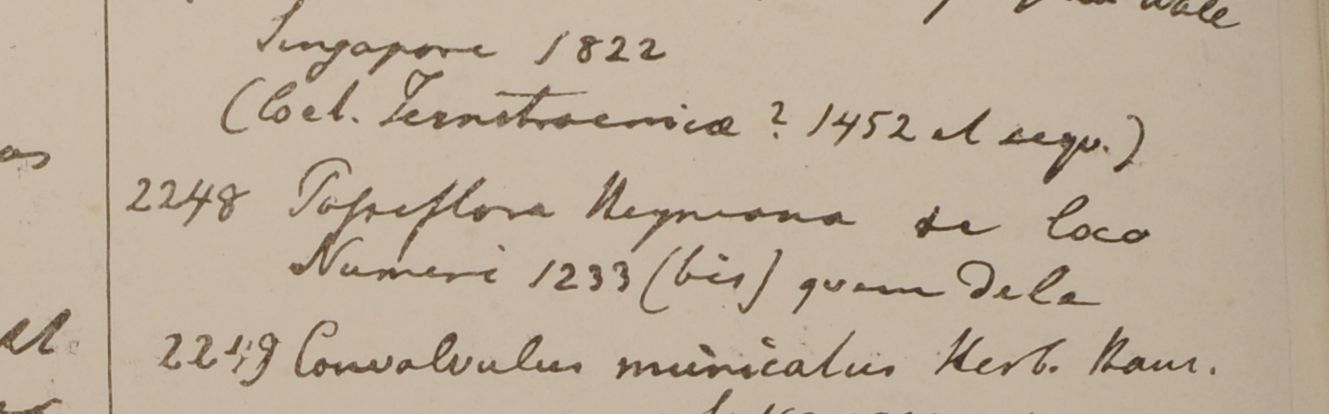 Wall
Singapore 1822
(Coel. Ternstroemiae ? 1452 et sequ.)
2248 Passiflora Heyneana de loco
Numeri 1233 (bis) quem dele
2249 Convolvulus muricatus Herb. Ham.